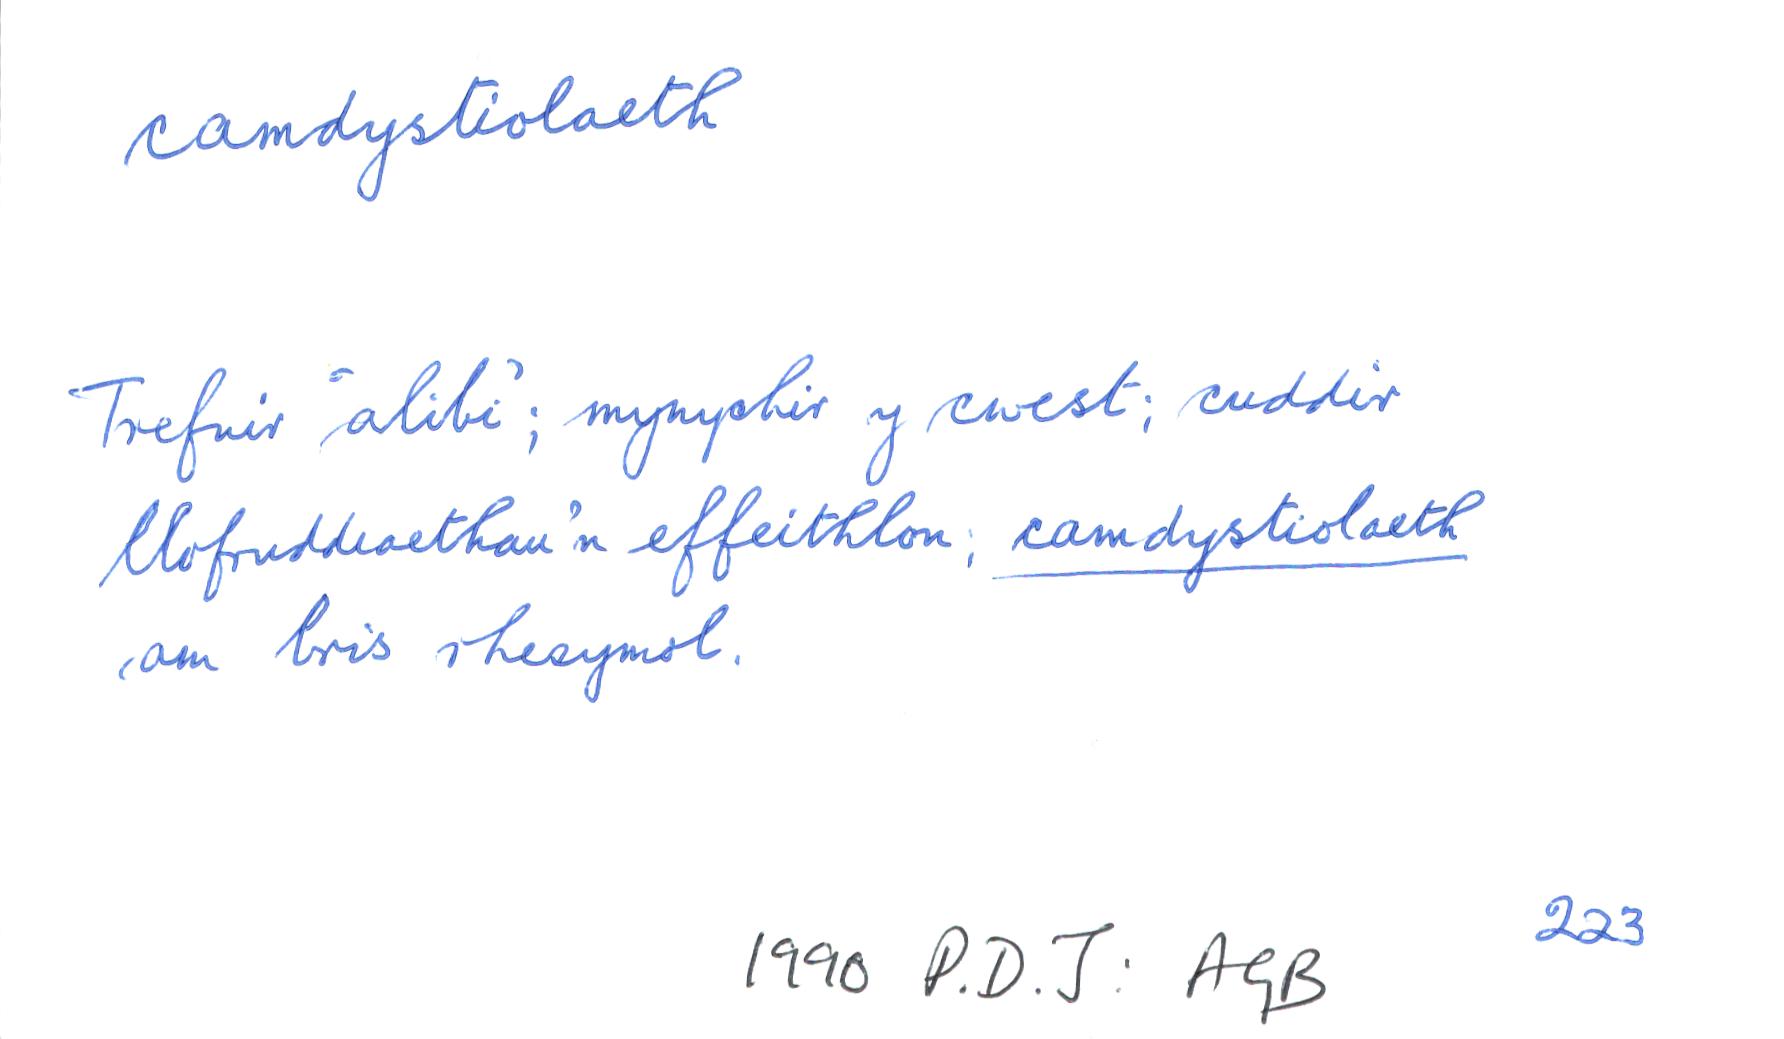 camdystiolaeth
Trefnir "alibi"; mynychir y cwest; cuddir
llofruddiaethau'n effeithlon; camdystiolaeth
am bris rhesymol.
223
1990 P.D.J: AGB